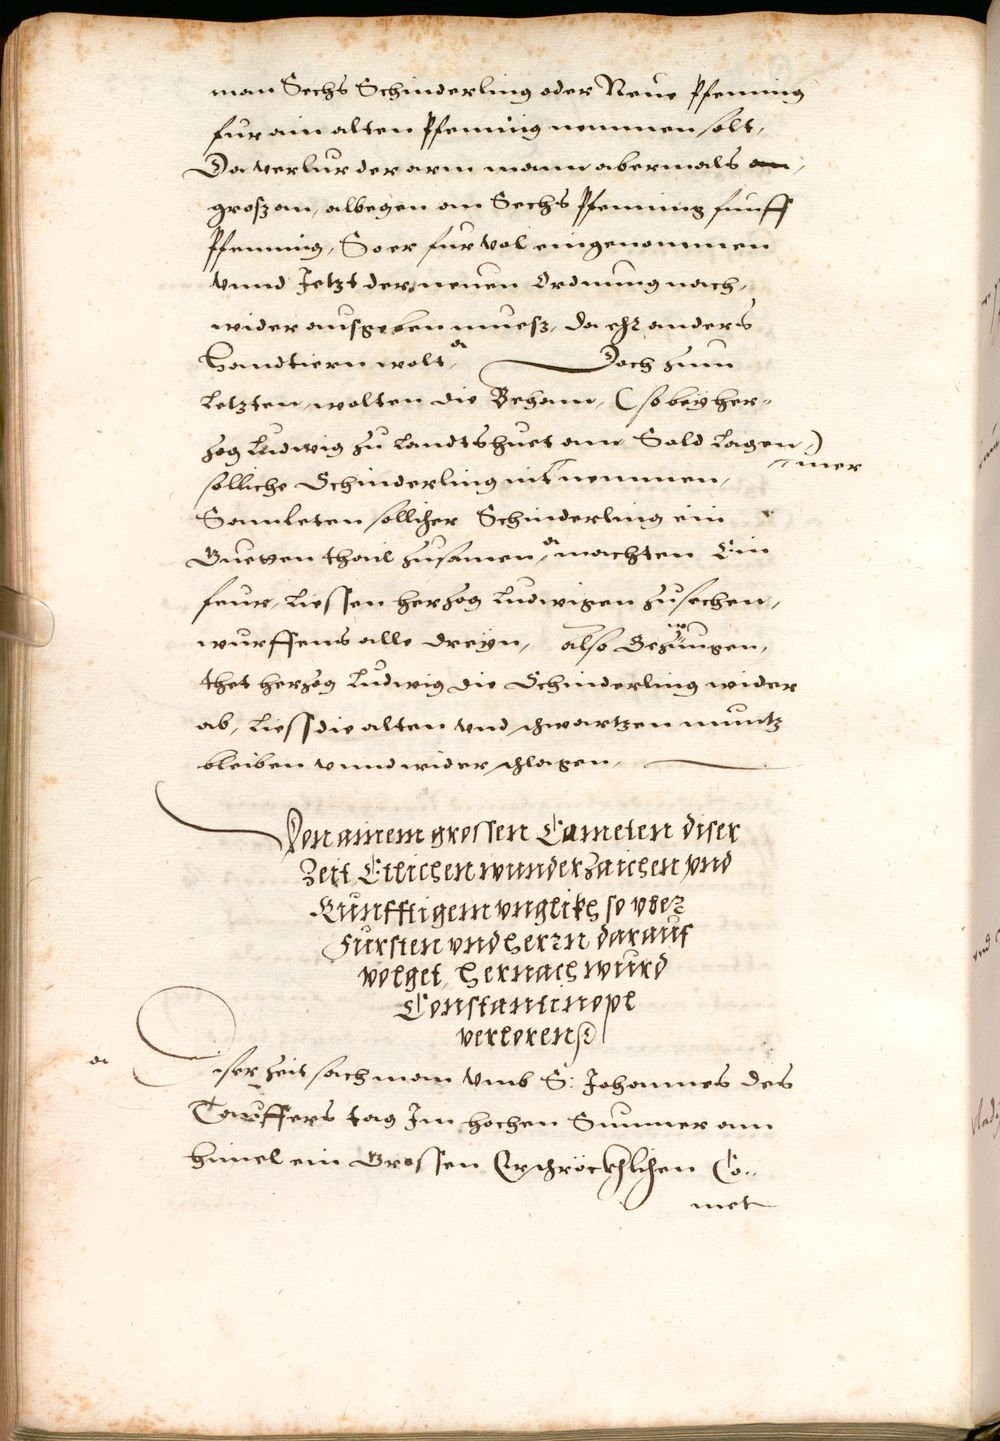 man Sechs Schinderling oder Neue Pfenning
fur ain alten Pfenning nemmen solt,
Da verlur der arm mann abermals
gross an, albegen an Sechs Pfenning funff
Pfenning, So er fur vol eingenommen
vnnd Jetzt der neuen Ordnung nach,
wider ausgeben muesz, da ehr anders
handtiern wolt, Doch zum
Letzten, wolten die Beham, (so bey her-
zog Ludwig zu Landtshuet am Sold Lagen,)
solliche Schinderling nit mer nemmen,
Samleten sollicher Schinderling ein
Gueten thail zusamen, machten Ein
feur, Liessen herzog Ludwigen zusechen,
wurffens alle dreyn, also Gezwungen,
thet herzog Ludwig die Schinderling wider
ab, Liess die alten vnd schwartzen muntz
bleiben vnnd wider schlagen,
Von ainem grossen Cometen diser
Zeit Etlichen wunderzaichen vnd
Kunfftigem vnglikh so vber
Fursten vnd herrn darauf
volget, hernach wurd
Constantinopl
verloren
Diser zeit sach man vmb S: Johannes des
Tauffers tag Im hochen Summer am
himel ein Grossen Erschröckhlichen Co-
met